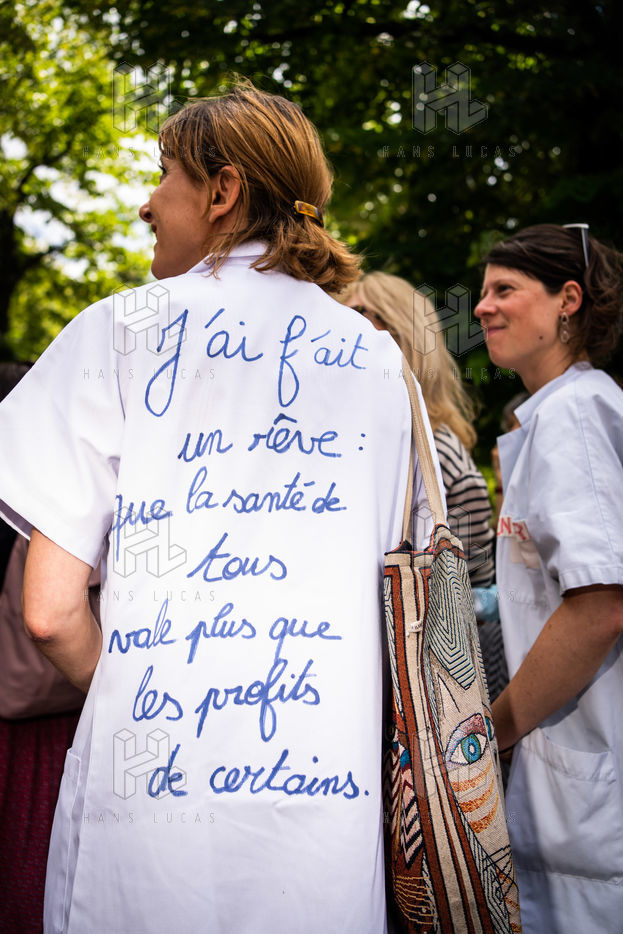 J'ai fait
un rêve :
que la santé de
tous
vale plus que
les profits
de certains.
HANS LUCAS
HANS LUCAS
HANS LUCAS
HANS LUCAS
HANS LUCAS
HANS LUCAS
HANS LUCAS
HANS LUCAS